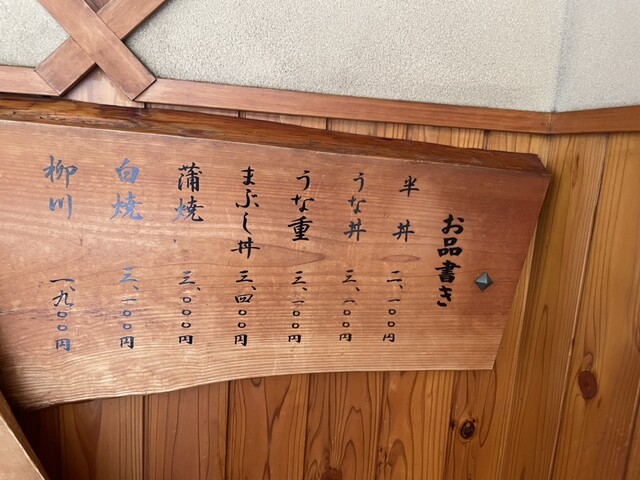 お品書き
半丼 二、一〇〇円
うな丼 三、一〇〇円
うな重 三、一〇〇円
まぶし丼 三、四〇〇円
蒲焼 三、〇〇〇円
白焼 三、一〇〇円
柳川 一、九〇〇円